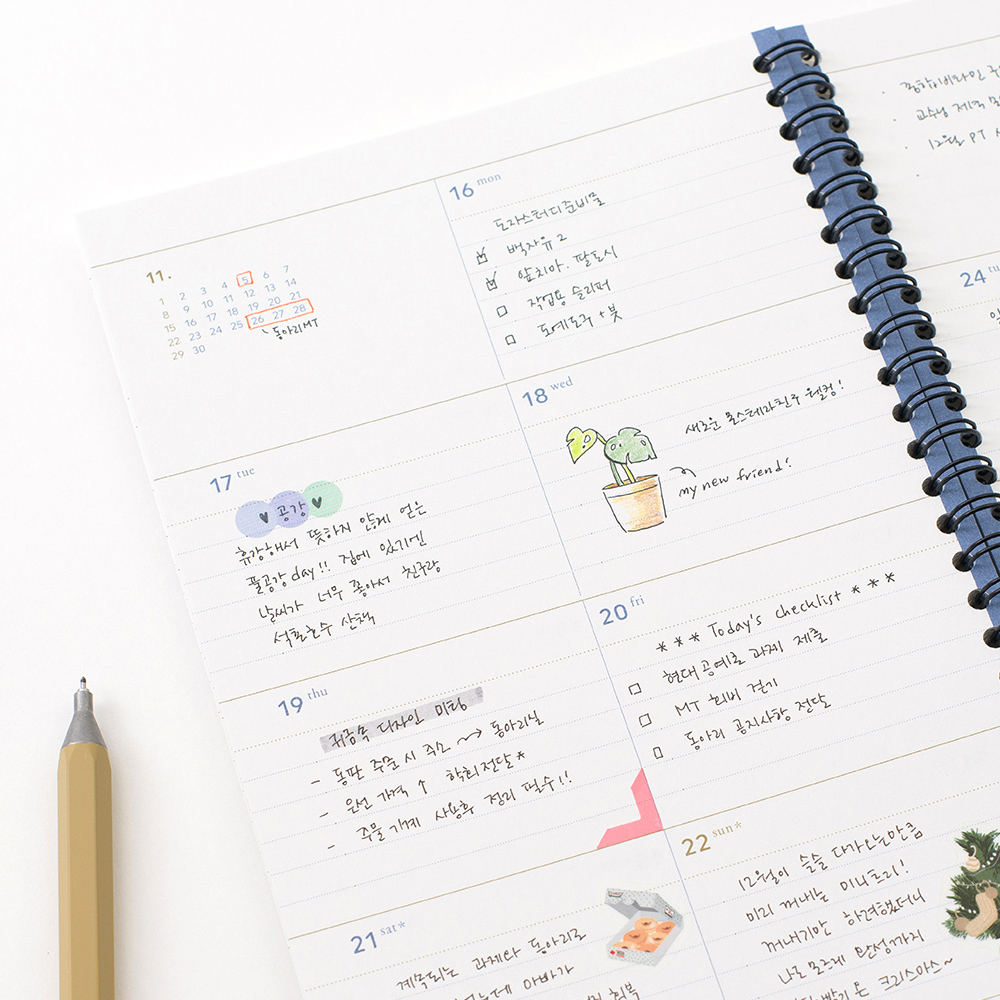 11.
1 2 3 4 5 6 7
8 9 10 11 12 13 14
15 16 17 18 19 20 21
22 23 24 25 26 27 28
29 30
동아리MT
16 mon
도자스터디준비물
백자유 2
앞치마. 팔토시
작업용 슬리퍼
도예도구 + 붓
17 tue
공강
휴강해서 뜻하지 않게 얻은
풀공강 day!! 집에 있기엔
날씨가 너무 좋아서 친구랑
석촌호수 산책
18 wed
새로운 몬스테라친구 웰컴!
my new friend!
19 thu
귀금속 디자인 미팅
- 동판 주문 시 주소 → 동아리실
- 은선 가격 ↑ 학회전달*
- 주물 기계 사용후 정리 필수!!
20 fri
*** Today's checklist ***
현대공예론 과제 제출
MT 회비 걷기
동아리 공지사항 전달
21 sat*
계속되는 과제와 동아리로
아빠가
회복
22 sun*
12월이 슬슬 다가오는만큼
미리 꺼내는 미니트리!
꺼내기만 하려했더니
나도모르게 완성까지
크리스마스~
교수님 제출
12월 PT
24 tu